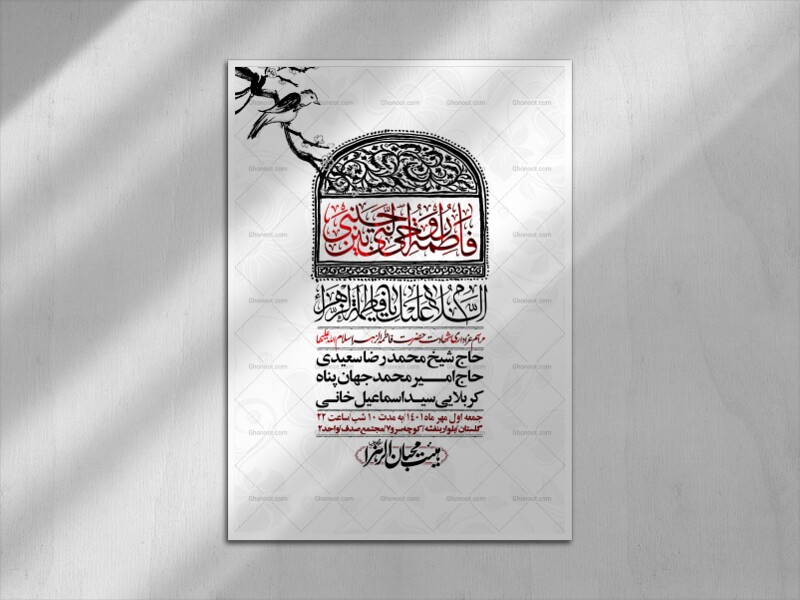 فاطمة روحي التي بين جنبي
السلام علیک یا فاطمة الزهراء
مراسم عزاداری شهادت حضرت فاطمه الزهرا سلام الله علیها
حاج شیخ محمدرضا سعیدی
حاج امیر محمد جهان پناه
کربلایی سید اسماعیل خانی
جمعه اول مهر ماه ۱۴۰۱/به مدت ۱۰ شب/ساعت ۲۲
گلستان/بلوار بنفشه/کوچه سرو۷/مجتمع صدف/واحد۲
هیئت محبان الزهرا
Ghonoot.com